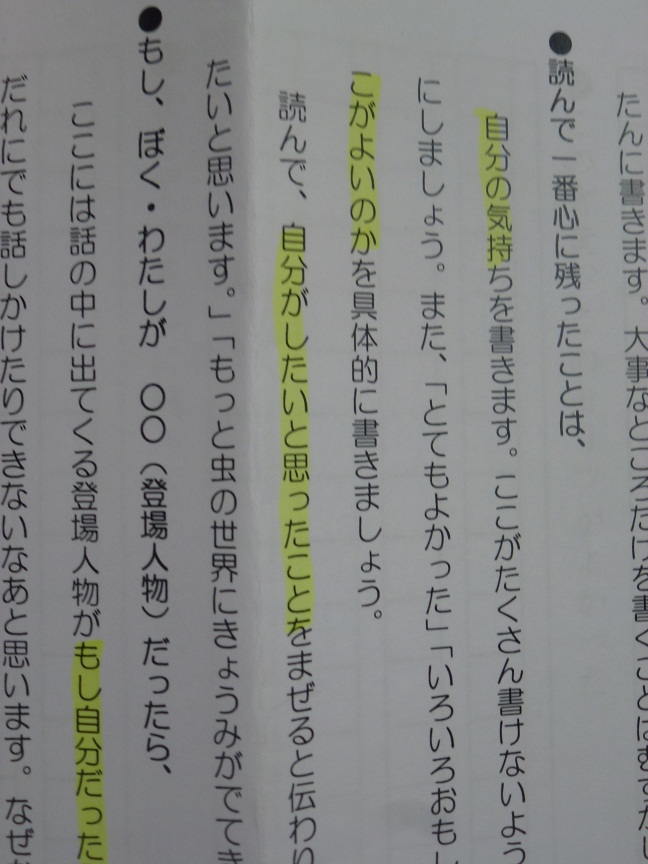 たんに書きます。大事なところだけを書くことはむずかし
●読んで一番心に残ったことは、
自分の気持ちを書きます。ここがたくさん書けないよう
にしましょう。また、「とてもよかった」「いろいろおもし
こがよいのかを具体的に書きましょう。
読んで、自分がしたいと思ったことをまぜると伝わり
たいと思います。」「もっと虫の世界にきょうみがでてき
●もし、ぼく・わたしが　○○（登場人物）だったら、
ここには話の中に出てくる登場人物がもし自分だった
だれにでも話しかけたりできないなあと思います。なぜ